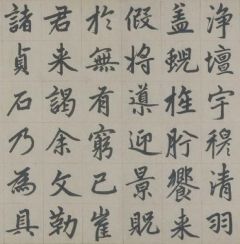 淨壇宇穆清羽
盖蜺旌肸饗来
假将導迎景貺
於無有窮已崔
君来謁余文勒
諸貞石乃為具